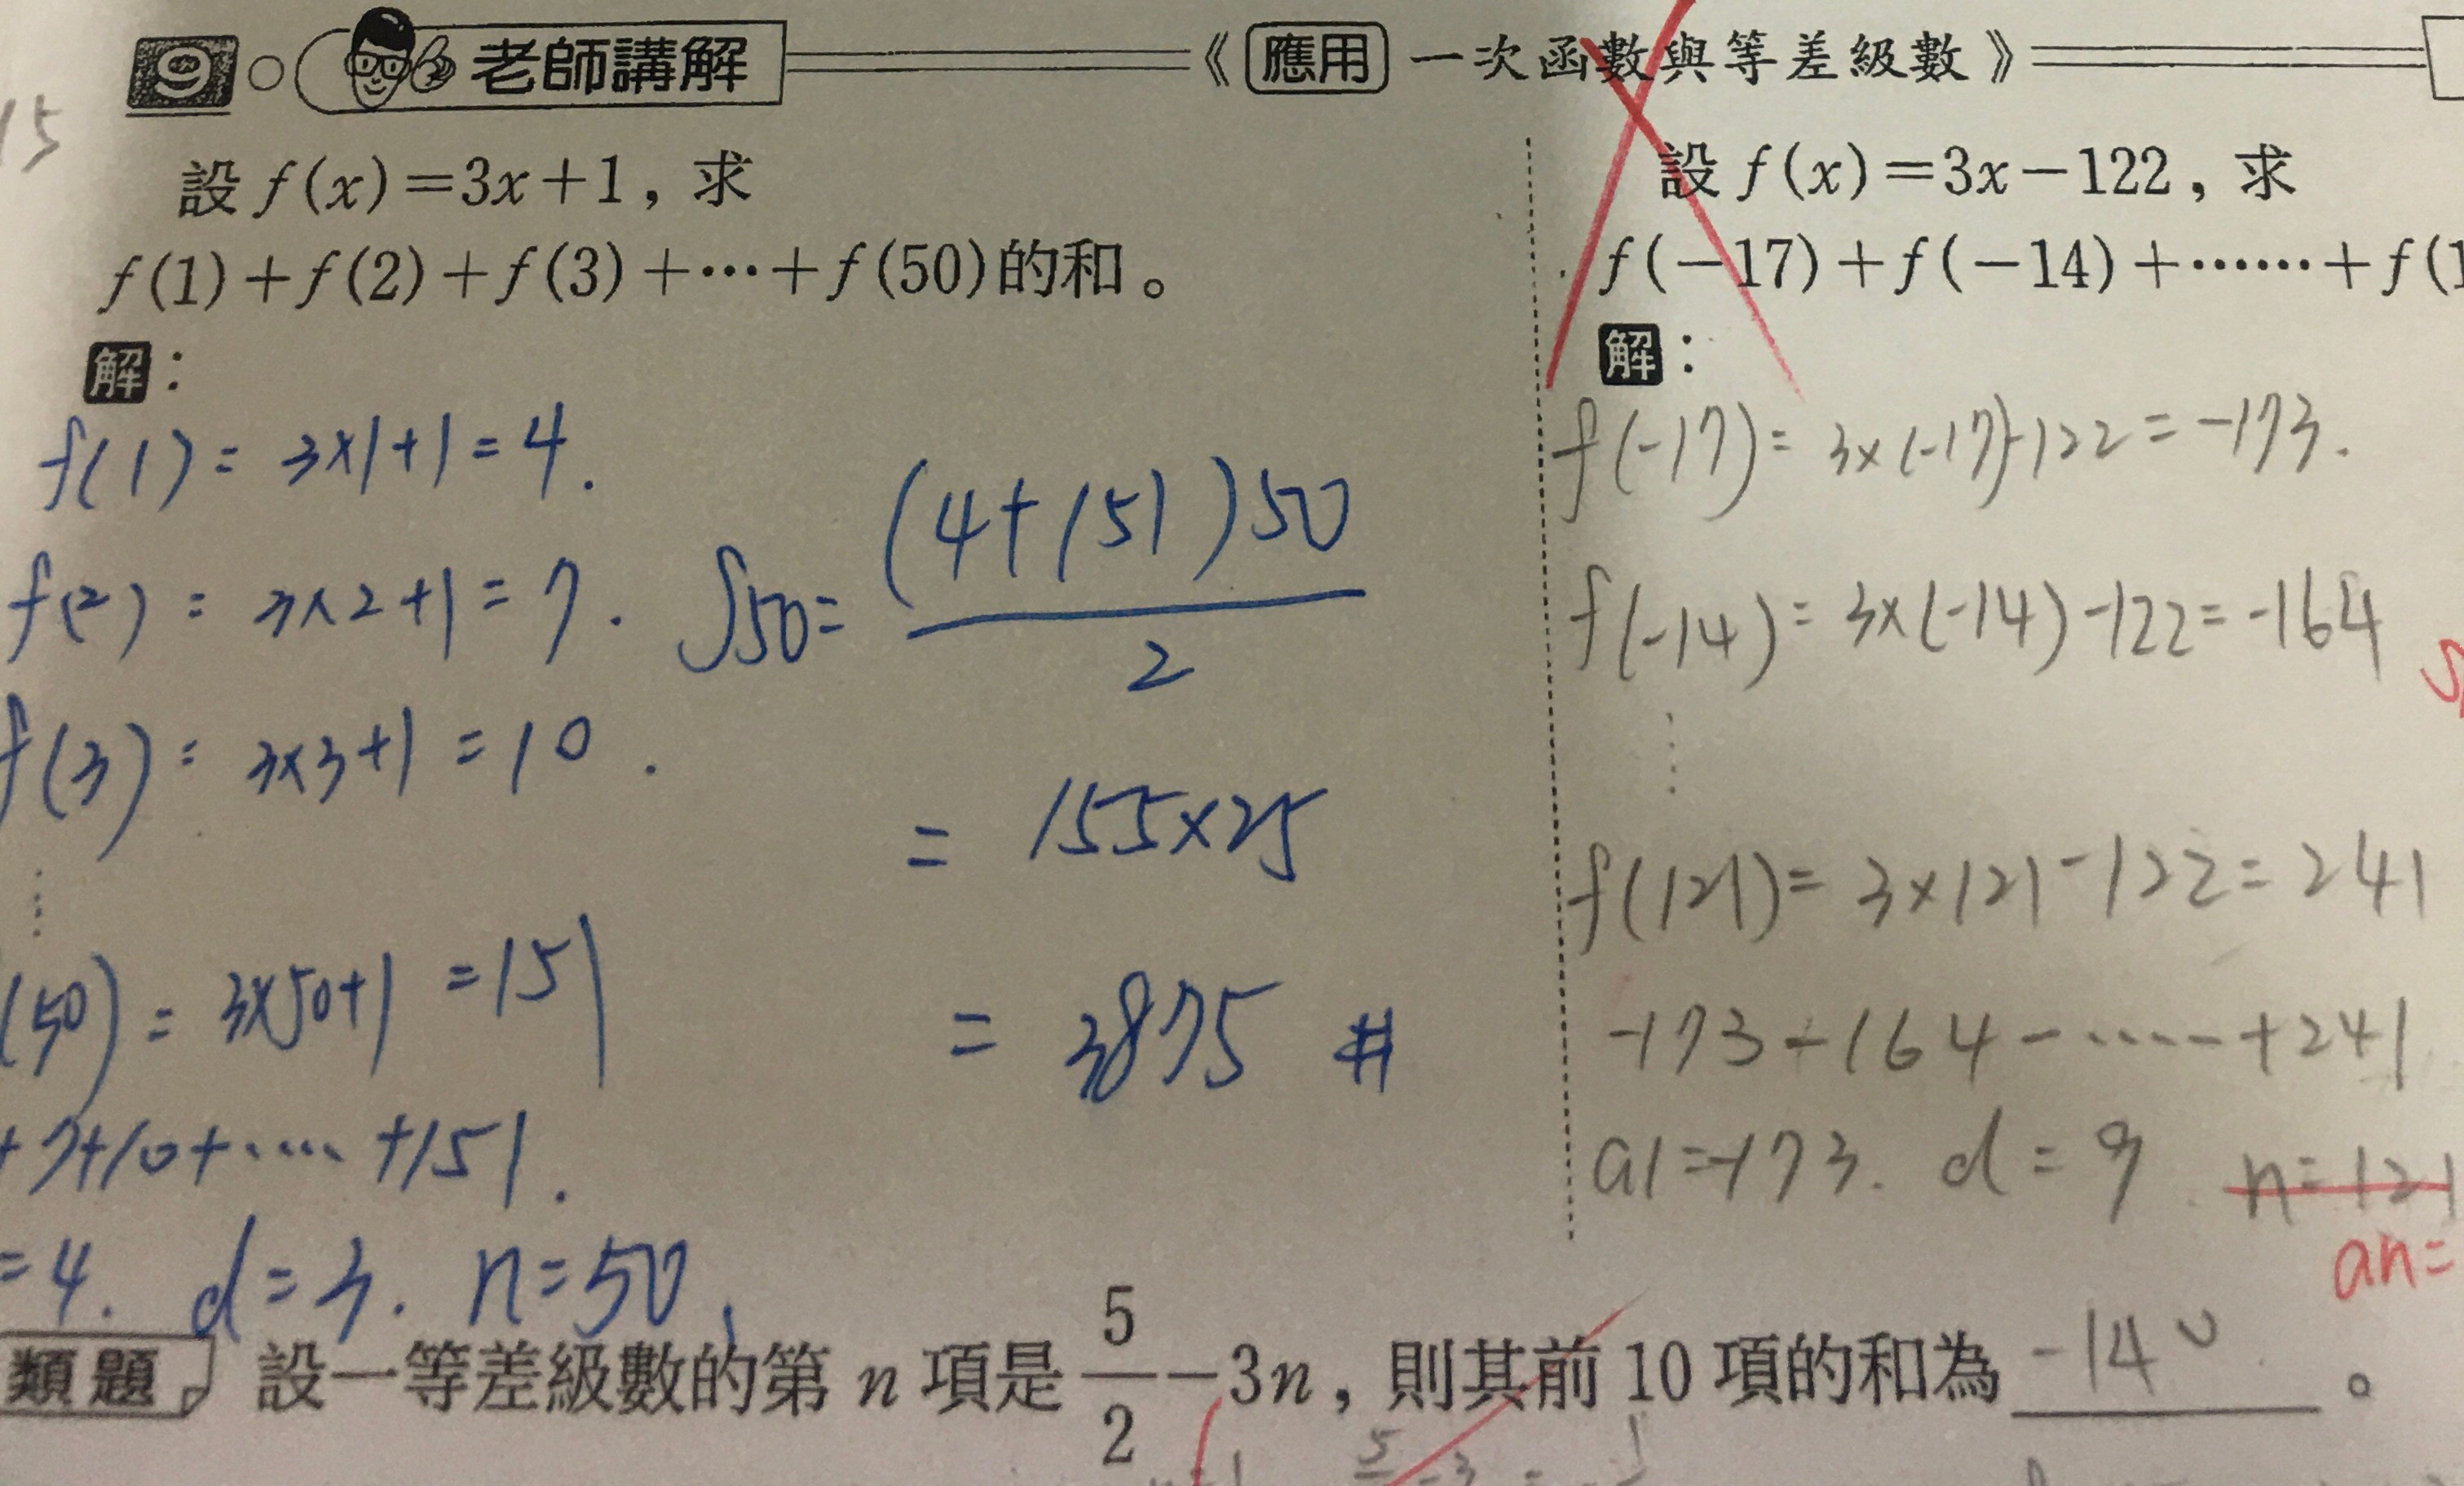 9 老師講解
《應用 一次函數與等差級數》
15
設 f(x)=3x+1, 求
f(1)+f(2)+f(3)+⋯+f(50)的和。
解:
f(1) = 3×1+1 = 4.
f(2) = 3×2+1 = 7.
f(3) = 3×3+1 = 10.
⋮
(50) = 3×50+1 = 151
+7+10+⋯⋯+151.
=4. d=3. n=50,
S50= (4+151)50/2
= 155×25
= 3875 #
設 f(x)=3x-122, 求
f(-17)+f(-14)+⋯⋯+f(1
解:
f(-17) = 3×(-17)-122 = -173.
f(-14) = 3×(-14)-122 = -164
⋮
f(121) = 3×121-122 = 241
-173-164-⋯⋯+241
a1=-173. d=9 n=121
an=
類題 設一等差級數的第 n 項是 5/2-3n, 則其前 10 項的和為 -140。